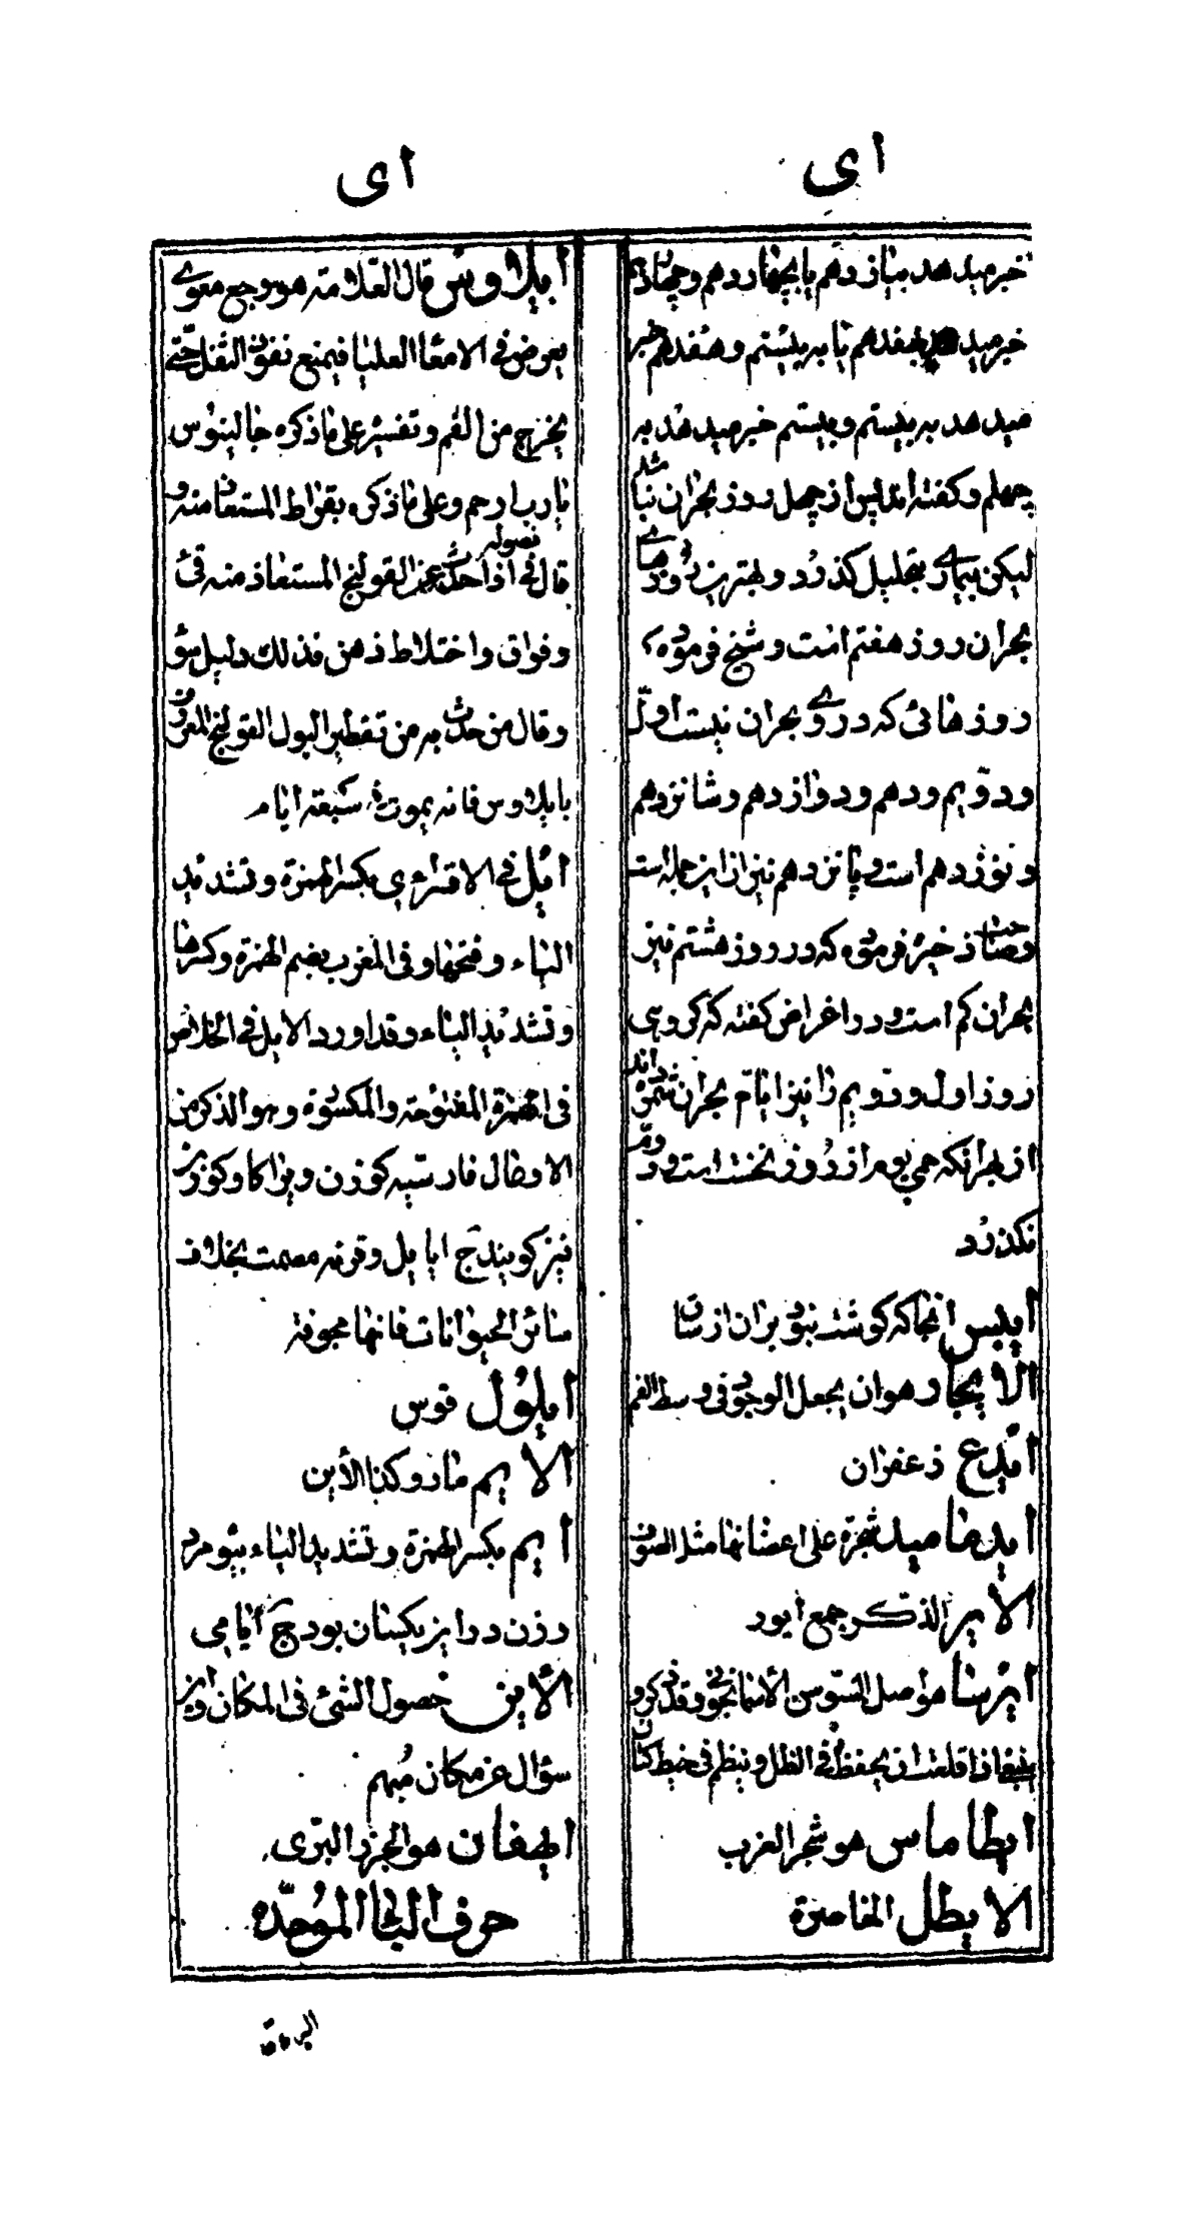 ای
خبر میدهد بیازدهم یا بچهاردهم و چهاردهم
خبر میدهد بهفدهم یا به بیستم و هفدهم خبر
میدهد به بیستم و بیستم خبر میدهد به
چهلم و گفته اند پس از چهل روز بحران نباشد
لیکن بیماری بتحلیل گذرد و بهترین روزهای
بحران روز هفتم است و شیخ فرموده
روزهائی که در وی بحران نیست اوّل
و دوّیم و دهم و دوازدهم و شانزدهم
و نوزدهم است و پانزدهم نیز از این جمله است
و صاحب ذخیره فرموده که در روز هشتم نیز
بحران کم است و در اغراض گفته که گروهی
روز اول و دوّیم را نیز ایّام بحران شمرده‌اند
از بهر آنکه حمی یوم از روز نخست است و دوّم
نگذرد
ایبس آنجا که گوشت نبود بر آن از ساق
الایجار هو ان یجعل الوجور فی وسط الفم
ایدع زعفران
ایدصامید شجرة علی اعضانها مثل الصوف
الایر الذکر جمع ایور
ایرسا هو اصل السوسن الاسمانجونی و قد ذکر و
ینبغی اذا قلعت ان یحفظ فی الظل و ینظم فی خیط کتان
ایطاماس هو شجر الغرب
الایطل الخاصرة
ای
ایلاوس قال العلامة هو وجع معوی
یعرض فی الامعا العلیا فیمنع نفوذ الثفل حتّی
یخرج من الفم و تفسیره علی ما ذکره جالینوس
یا رب ارحم و علی ما ذکره بقراط المستعاذ منه و
قال فی فصوله اذا حدث عن القولنج المستعاذ منه قئ
و فواق و اختلاط ذهن فذلک دلیل سوء
و قال من حدث به من تقطیر البول القولنج المعروف
بایلاوس فانه یموت فی سبعة ایام
ایّل فی الاقسرای بکسر الهمزة و تشدید
الیاء و فتحها و فی المغرب بضم الهمزة و کسرها
و تشدید الیاء و قد اورد الایل فی الخلاص
فی الهمزة المفتوحة و المکسورة و هو الذکر من
الاوعال فارسیه گوزن و یراکاو کوزن
نیز گویند ج ایاییل و قرنه مصمت بخلاف
سائر الحیوانات فانها مجوفة
ایلول قوس
الایم مار و کذا الأین
أیم بکسر الهمزة و تشدید الیاء بیوه مرد
و زن در این یکسان بود ج ایامی
الأین حصول الشئ فی المکان و این
سؤال عن مکان مبهم
ایهقان هو الجزر البرّی
حرف الباء الموحّده